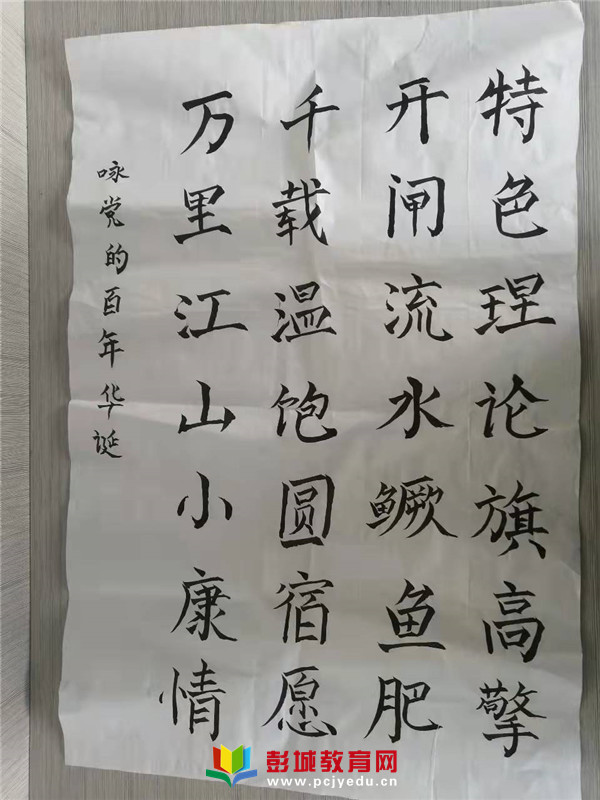 特色理论旗高擎
开闸流水鳜鱼肥
千载温饱圆宿愿
万里江山小康情
咏党的百年华诞
彭城教育网
www.pcjyedu.cn